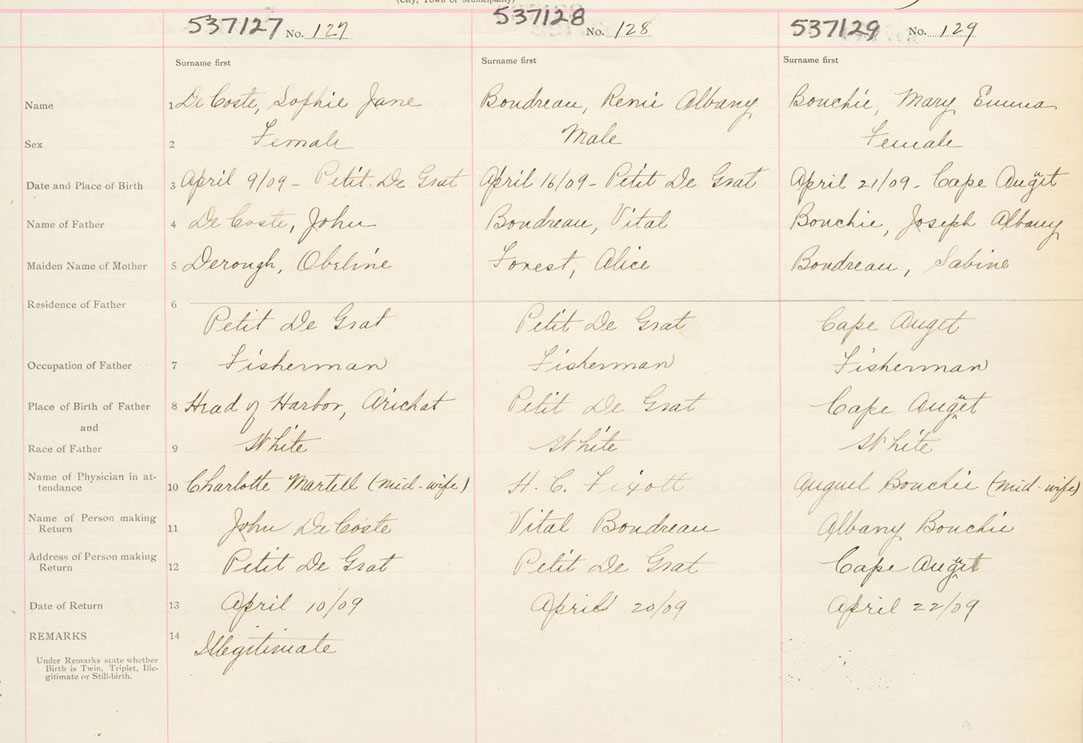 (City, Town or Municipality)
537127 No. 127 537128 No. 128 537129 No. 129
Surname first Surname first Surname first
Name 1 De Coste, Sophie Jane Boudreau, Renie Albany Bouchie, Mary Emma
Sex 2 Female Male Female
Date and Place of Birth 3 April 9/09 - Petit De Grat April 16/09 - Petit De Grat April 21/09 - Cape Auget
Name of Father 4 De Coste, John Boudreau, Vital Bouchie, Joseph Albany
Maiden Name of Mother 5 Derough, Obeline Forest, Alice Boudreau, Sabine
Residence of Father 6
Petit De Grat Petit De Grat Cape Auget
Occupation of Father 7 Fisherman Fisherman Fisherman
Place of Birth of Father 8 Head of Harbor, Arichat Petit De Grat Cape Auget
and
Race of Father 9 White White White
Name of Physician in at-
tendance 10 Charlotte Martell (mid-wife) H. C. Fixott Auguel Bouchie (mid-wife)
Name of Person making
Return 11 John De Coste Vital Boudreau Albany Bouchie
Address of Person making
Return 12 Petit De Grat Petit De Grat Cape Auget
Date of Return 13 April 10/09 April 20/09 April 22/09
REMARKS 14 Illegitimate
Under Remarks state whether
Birth is Twin, Triplet, Ille-
gitimate or Still-birth.